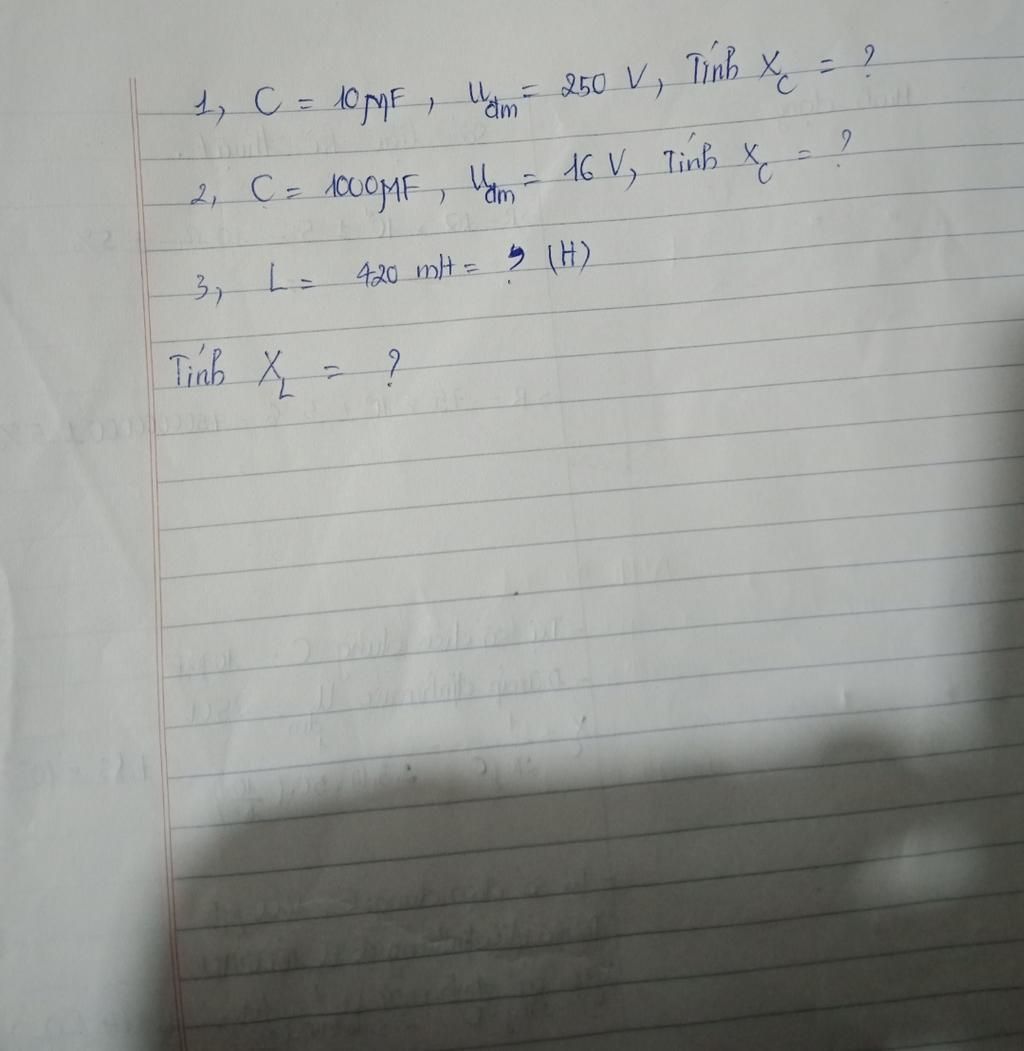 1, C = 10μF, Uđm = 250 V, Tính XC = ?
2, C = 1000μF, Uđm = 16 V, Tính XC = ?
3, L = 420 mH = ? (H)
Tính XL = ?